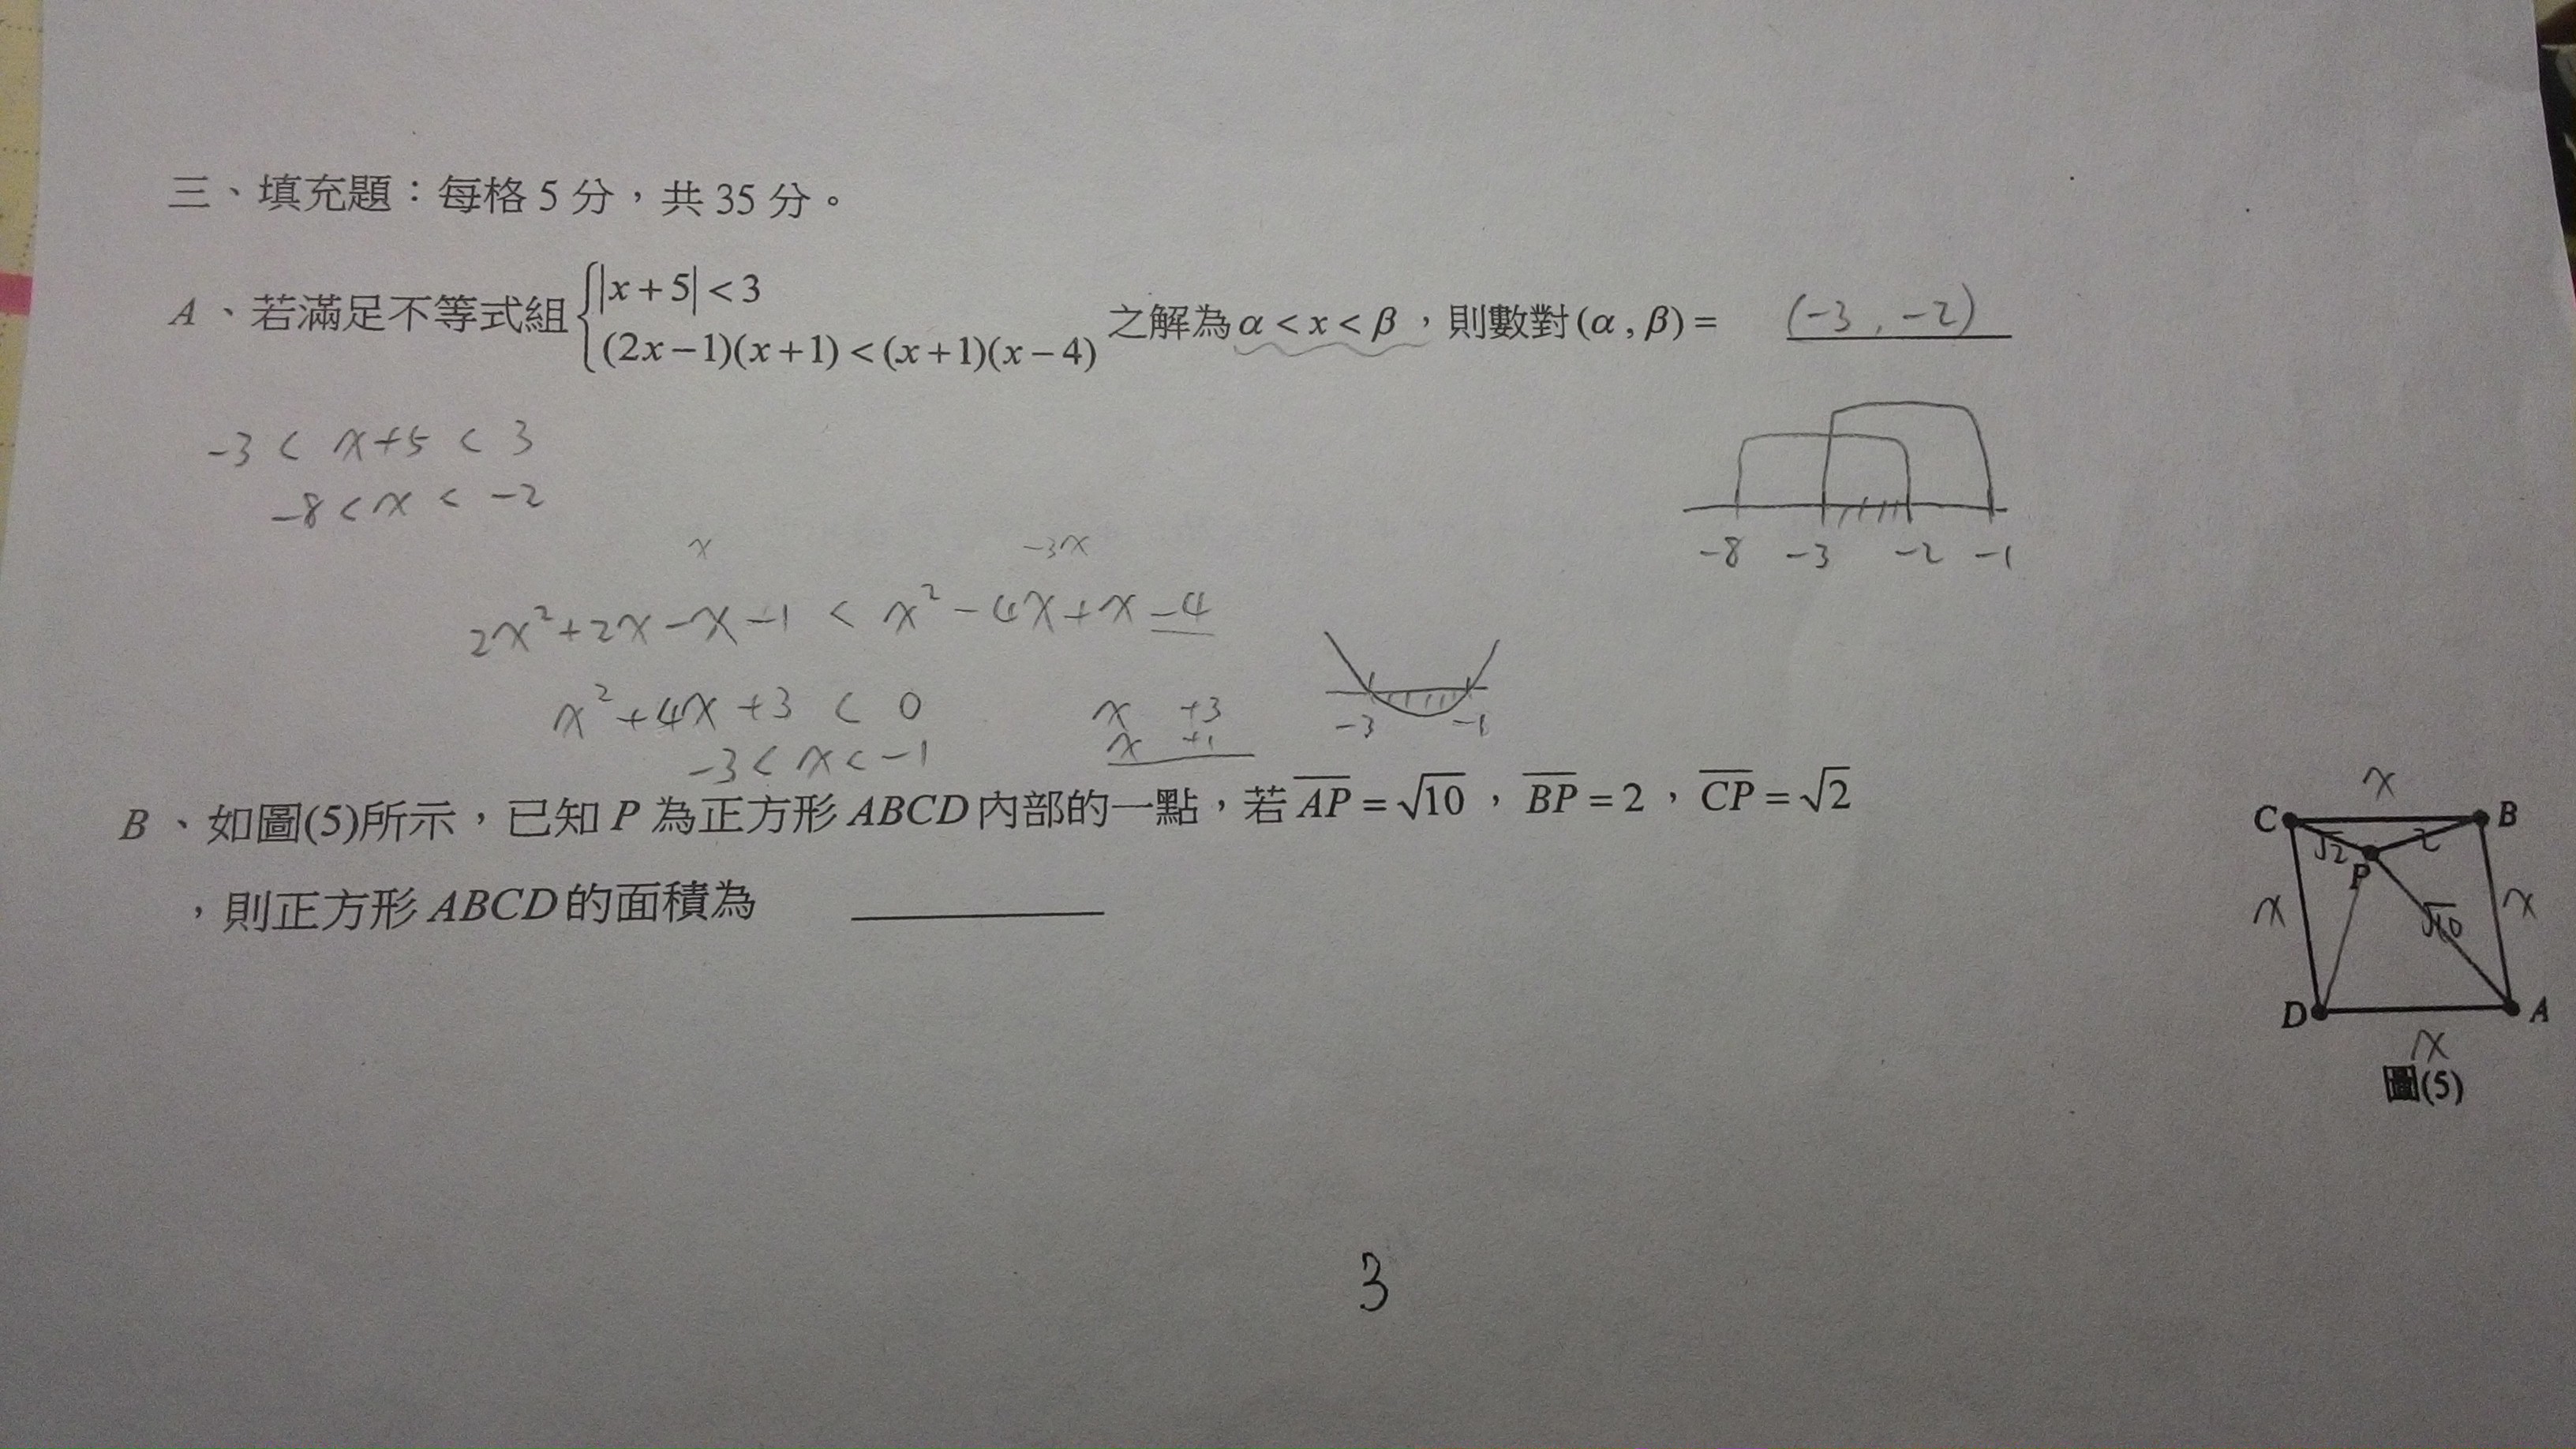 三、填充題：每格 5 分，共 35 分。
A、若滿足不等式組 { |x+5|<3
(2x−1)(x+1)<(x+1)(x−4) 之解為 α<x<β，則數對 (α , β) = (-3 , -2)
-3 < x+5 < 3
-8 < x < -2
-8 -3 -2 -1
x -3x
2x²+2x-x-1 < x²-4x+x-4
x²+4x+3 < 0
x +3
x +1
-3 -1
-3 < x < -1
B、如圖(5)所示，已知 P 為正方形 ABCD 內部的一點，若 A̅P̅ = √10，B̅P̅ = 2，C̅P̅ = √2
，則正方形 ABCD 的面積為
x
C B
√2 2
P
x √10 x
D A
x
圖(5)
3